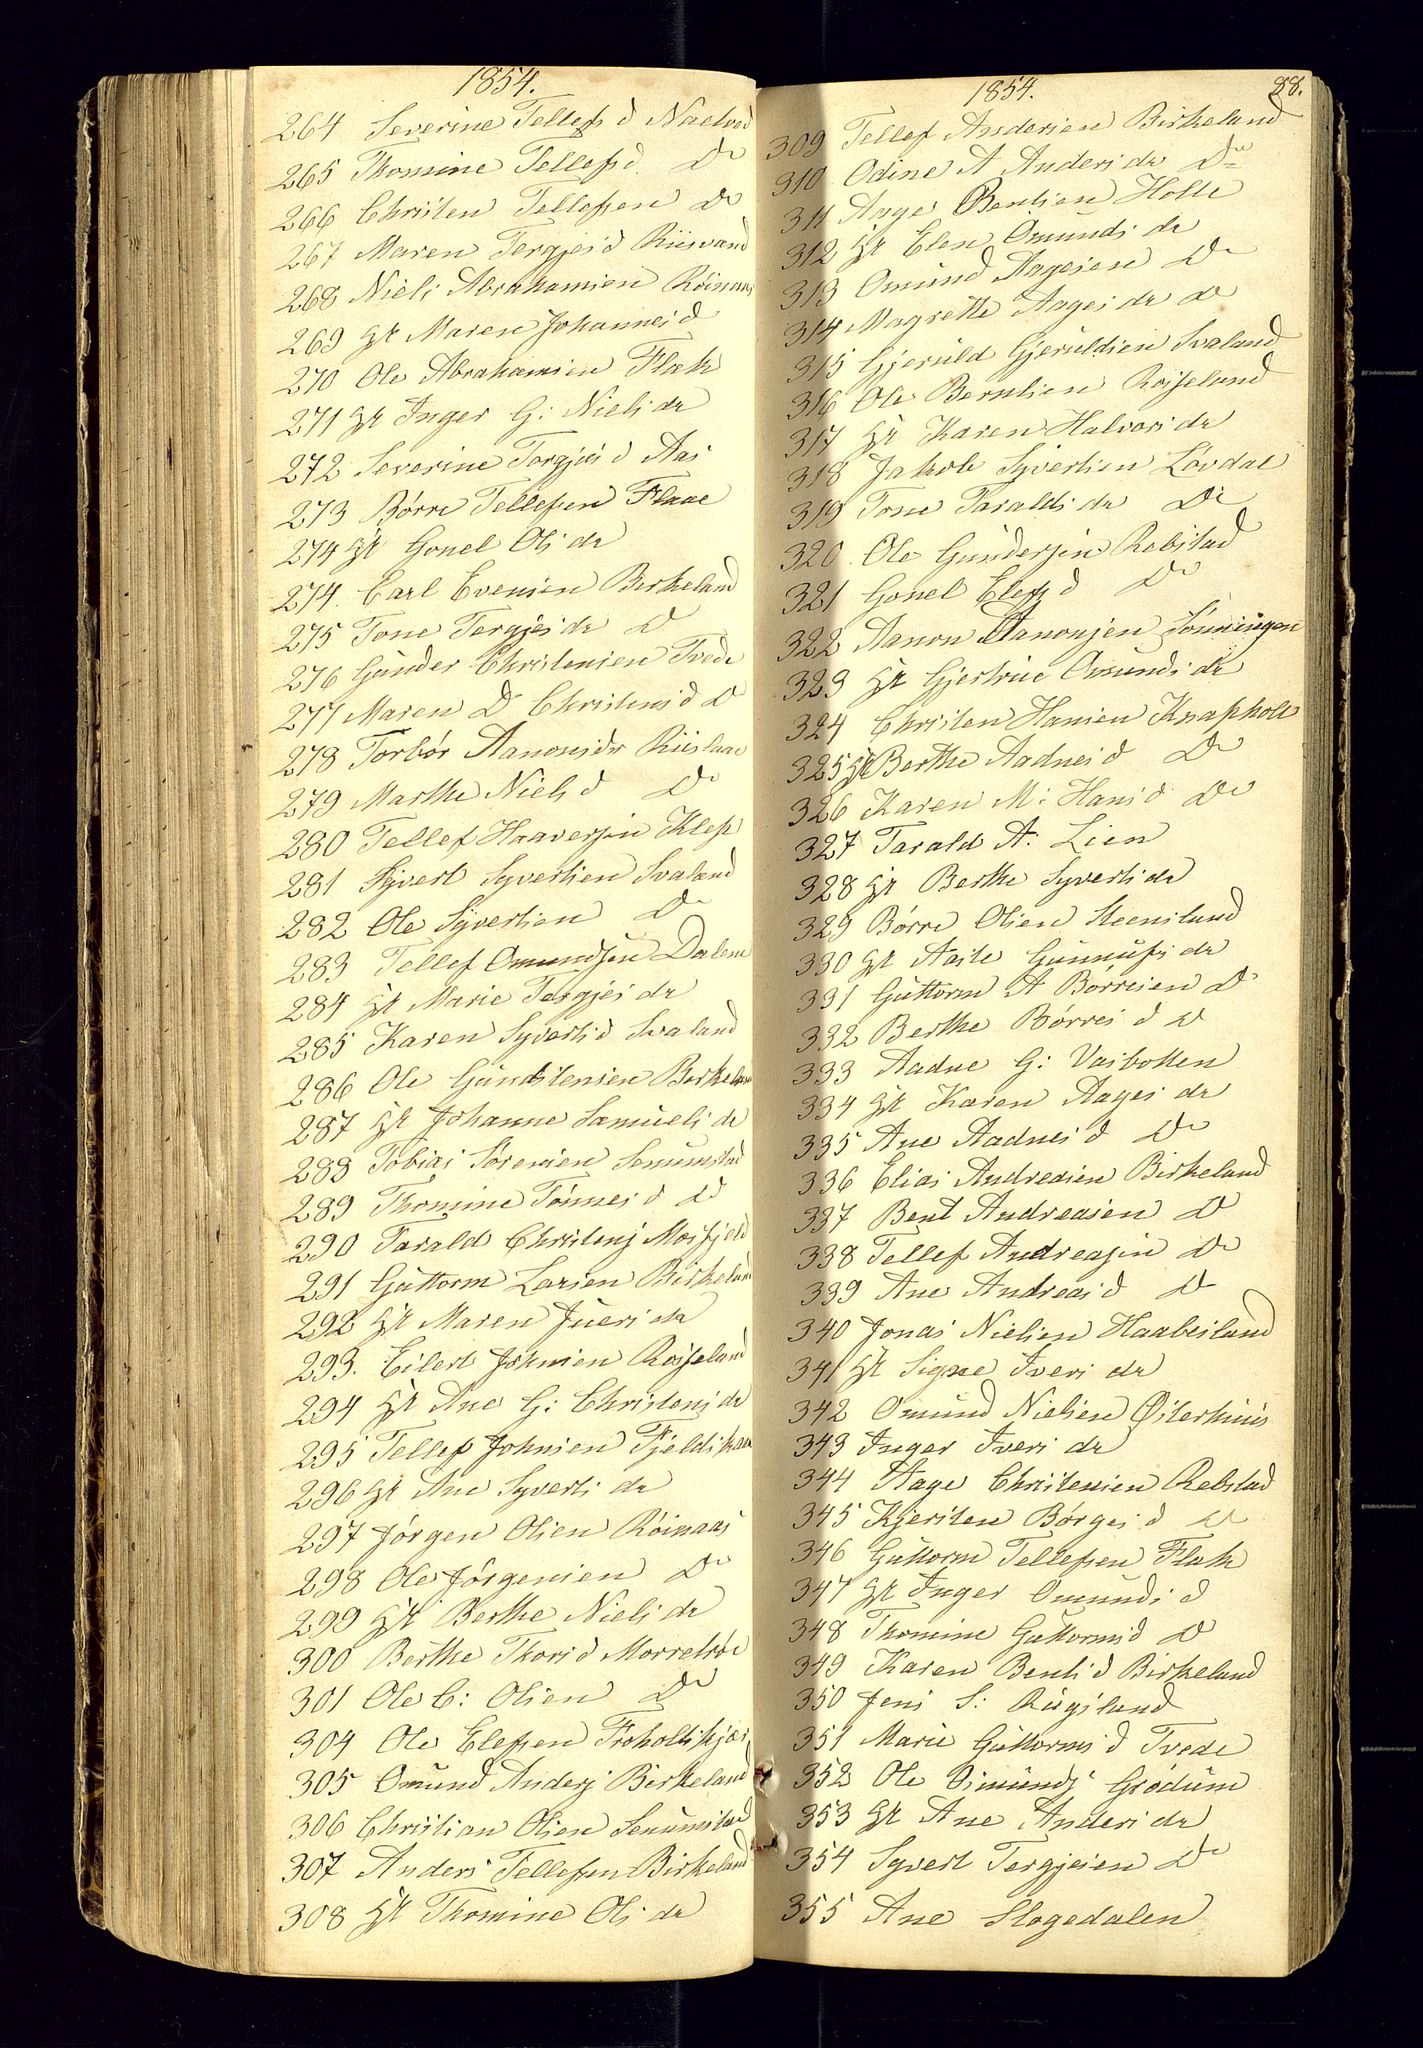 1854.
264 Severine Tellefsd Naelvod
265 Thomine Tellefsd. Do
266 Christen Tellefsen Do
267 Maren Tergjesd Riisvand
268 Niels Abrahamsen Röinaas
269 H. Maren Johannesd
270 Ole Abrahamsen Flak
271 H. Inger G: Nielsdr
272 Severine Torgjesd Aas
273 Börre Tellefsen Flaae
274 H. Gonel Olsdr
274. Carl Evensen Berkeland
275 Tone Tergjesdr D
276 Gunder Christensen Tvede
277 Maren D Christensd D
278 Torbör Aanonsdr Riislaae
279 Marthe Nielsd Do
280 Tellef Haaversen Klep
281 Syvert Syvertsen Svaland
282 Ole Syvertsen Do
283 Tellef Omundsen Dalene
284 H. Marie Tergjesdr
285 Karen Syvertsd Svaland
286 Ole Gundstensen Berkeland
287 H. Johanne Samuelsdr
288 Tobias Sörensen Senumstad
289 Thomine Tönnesd D
290 Tarald Christens Mosfjeld
291 Guttorm Larsen Birkeland
292 H. Maren Juersdr
293. Eilert Johnsen Rosseland
294 H. Ane G: Christensdr
295 Tellef Johnsen Fjeldskaar
296 H. Ane Syvertsdr
297 Jörgen Olsen Röinaas
298 Ole Jörgensen Do
299 H. Berthe Nielsdr
300 Berthe Thorsd Morreknöe
301 Ole C: Olsen Do
304 Ole Elefsen Froholtskjær
305 Omund Anders Birkeland
306 Christian Olsen Senumstad
307 Anders Tellefsen Birkeland
308 H. Thomine Olsdr
1854. 88.
309 Tellef Andersen Birkeland
310 Odine A Andersdr Do
311 Aage Bentsen Holte
312 H. Elen Omundsdr
313 Omund Aagesen Do
314 Magrette Aagesdr do
315 Gjeruld Gjeruldsen Svaland
316 Ole Berntsen Rosseland
317 H. Karen Halvorsdr
318 Jakob Syvertsen Lövdal
319 Tone Taraldsdr Do
320 Ole Gundersen Rebstad
321 Gonel Elefsd Do
322 Aanon Aanonsen Sönningen
323 H. Gjertrue Omundsdr
324 Christen Hansen Knapholt
325 H. Berthe Aadnesd Do
326 Karen M: Hansd Do
327 Tarald A. Lien
328 H. Berthe Syvertsdr
329 Börre Olsen Steensland
330 H. Aaste Gunnufsdr
331 Guttorm A Börresen D
332 Berthe Börresd D
333 Aadne G: Vasbotten
334 H. Karen Aagesdr
335 Ane Aadnesd Do
336 Elias Andreasen Birkeland
337 Bent Andreasen D
338 Tellef Andreasen Do
339 Ane Andreasd D
340 Jonas Nielsen Haabesland
341 H. Signe Iversdr
342 Omund Nielsen Österhuus
343 Inger Iversdr
344 Aage Christensen Rebstad
345 Kjersten Börgesd D
346 Guttorm Tellefsen Flak
347 H. Inger Omundsd
348 Thomine Guttormsd D
349 Karen Bentsd Birkeland
350 Jens S: Rugsland
351 Marie Guttormsd Tvede
352 Ole Simunds Grödum
353 H. Ane Andersdr
354 Syvert Tergjesen Do
355 Ane Slogedalen